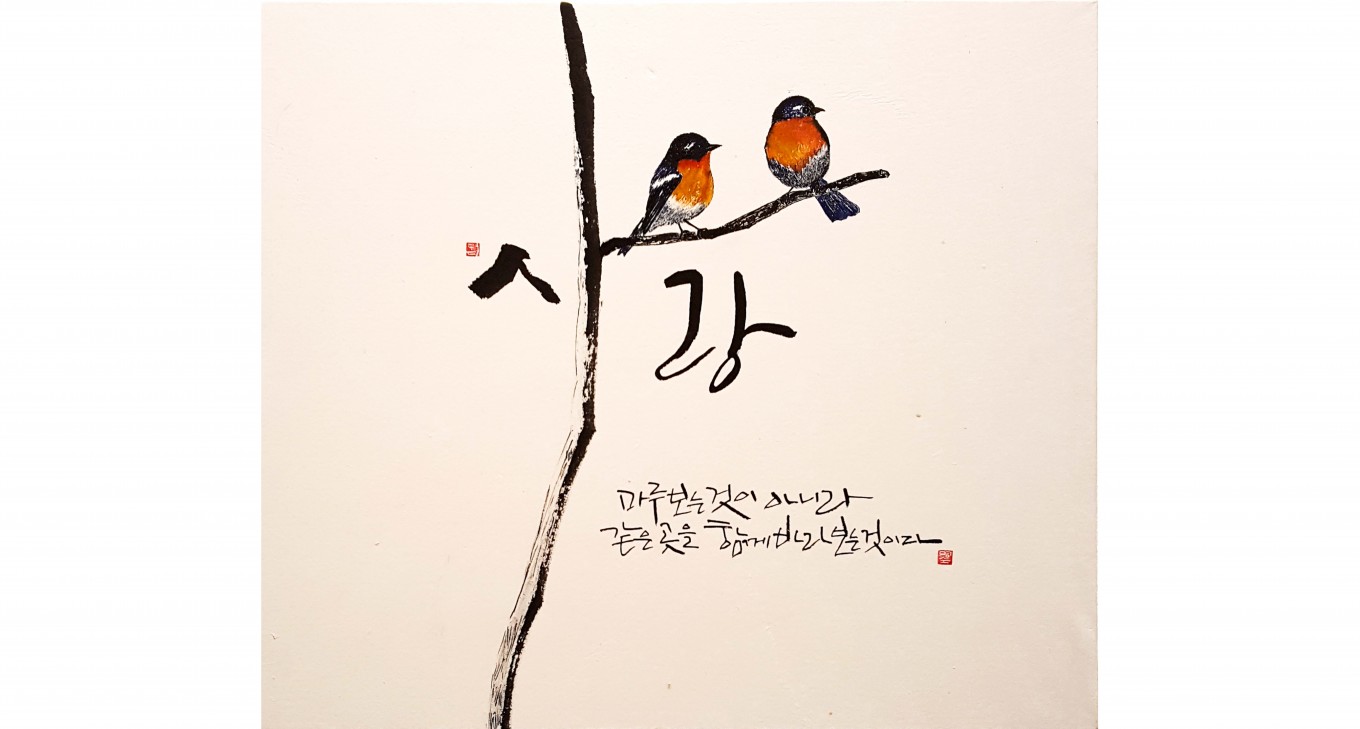 사랑
마주보는것이 아니라
같은곳을 함께바라보는것이다